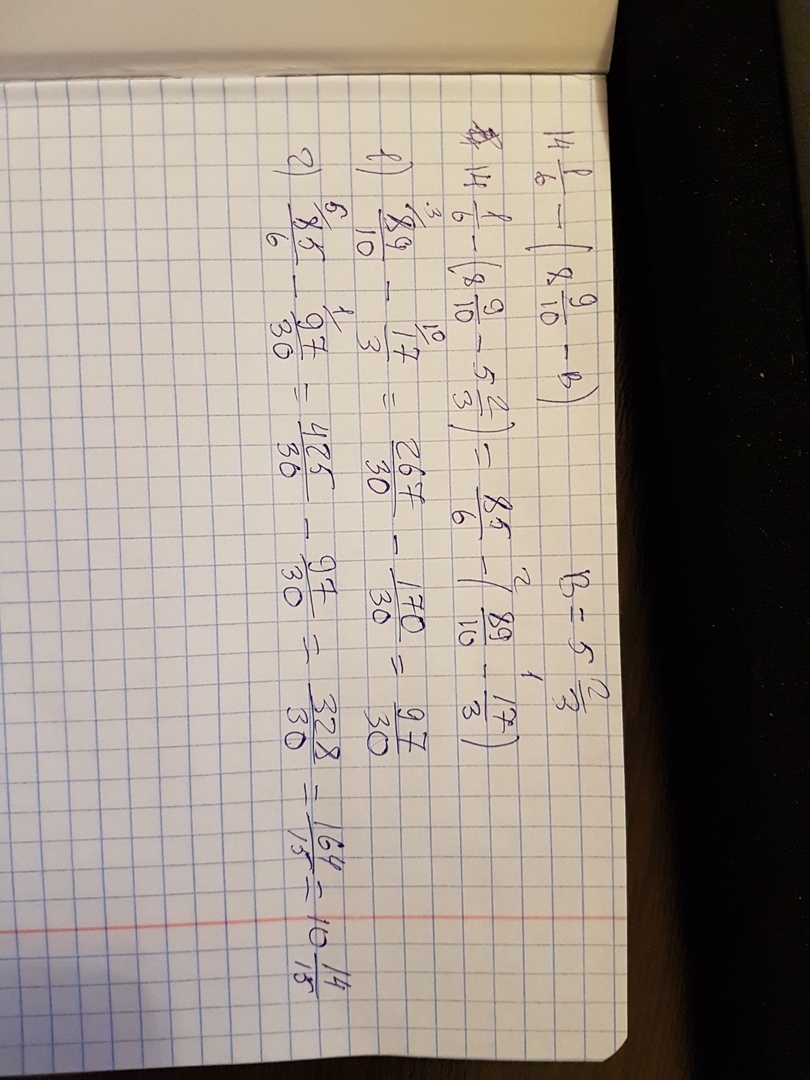 14 1/6 - (8 9/10 - B) B = 5 2/3
14 1/6 - (8 9/10 - 5 2/3) = 85/6 -² (89/10 -¹ 17/3)
1) ³⁄89/10 - ¹⁰⁄17/3 = 267/30 - 170/30 = 97/30
2) ⁵⁄85/6 - ¹⁄97/30 = 425/30 - 97/30 = 328/30 = 164/15 = 10 14/15